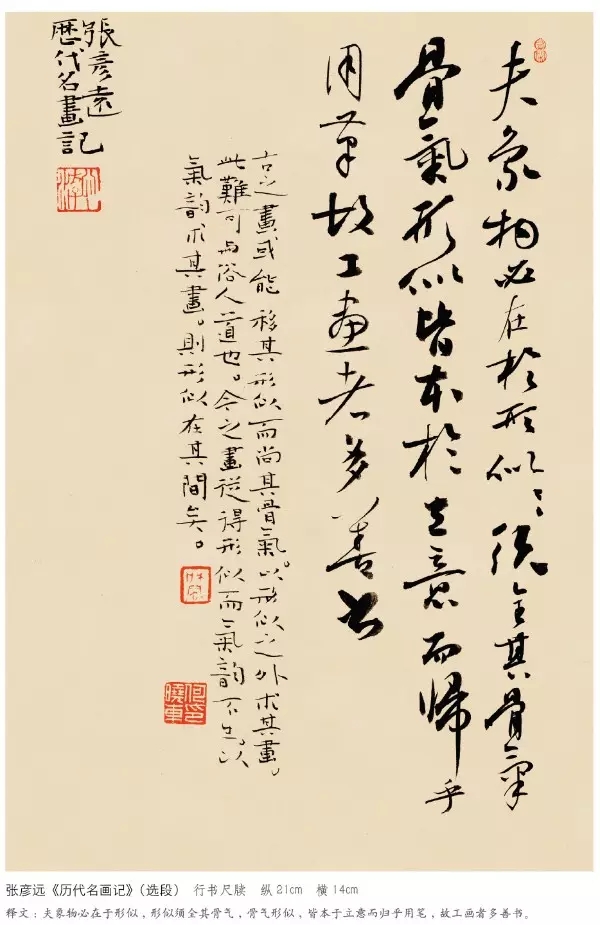 夫象物必在於形似〻須全其骨氣
骨氣形似皆本於立意而歸乎
用筆故工画者多善書
古之畫或能移其形似而尚其骨氣。以形似之外求其畫。
此難可与俗人道也。今之畫從得形似而氣韵不生。以
氣韵求其畫。則形似在其間矣。
張彦遠
歷代名畫記
张彦远《历代名画记》（选段） 行书尺牍 纵21cm 横14cm
释文：夫象物必在于形似，形似须全其骨气，骨气形似，皆本于立意而归乎用笔，故工画者多善书。